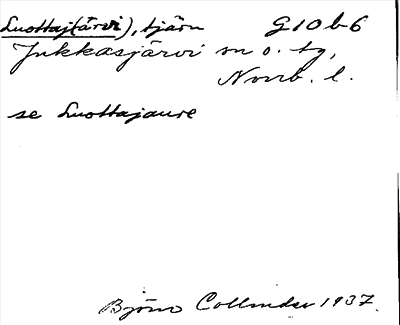 Luottaj(ärvi), tjärn G10b6
Jukkasjärvi sn o. tg,
Norrb. l.
se Luottajaure
Björn Collinder 1937.